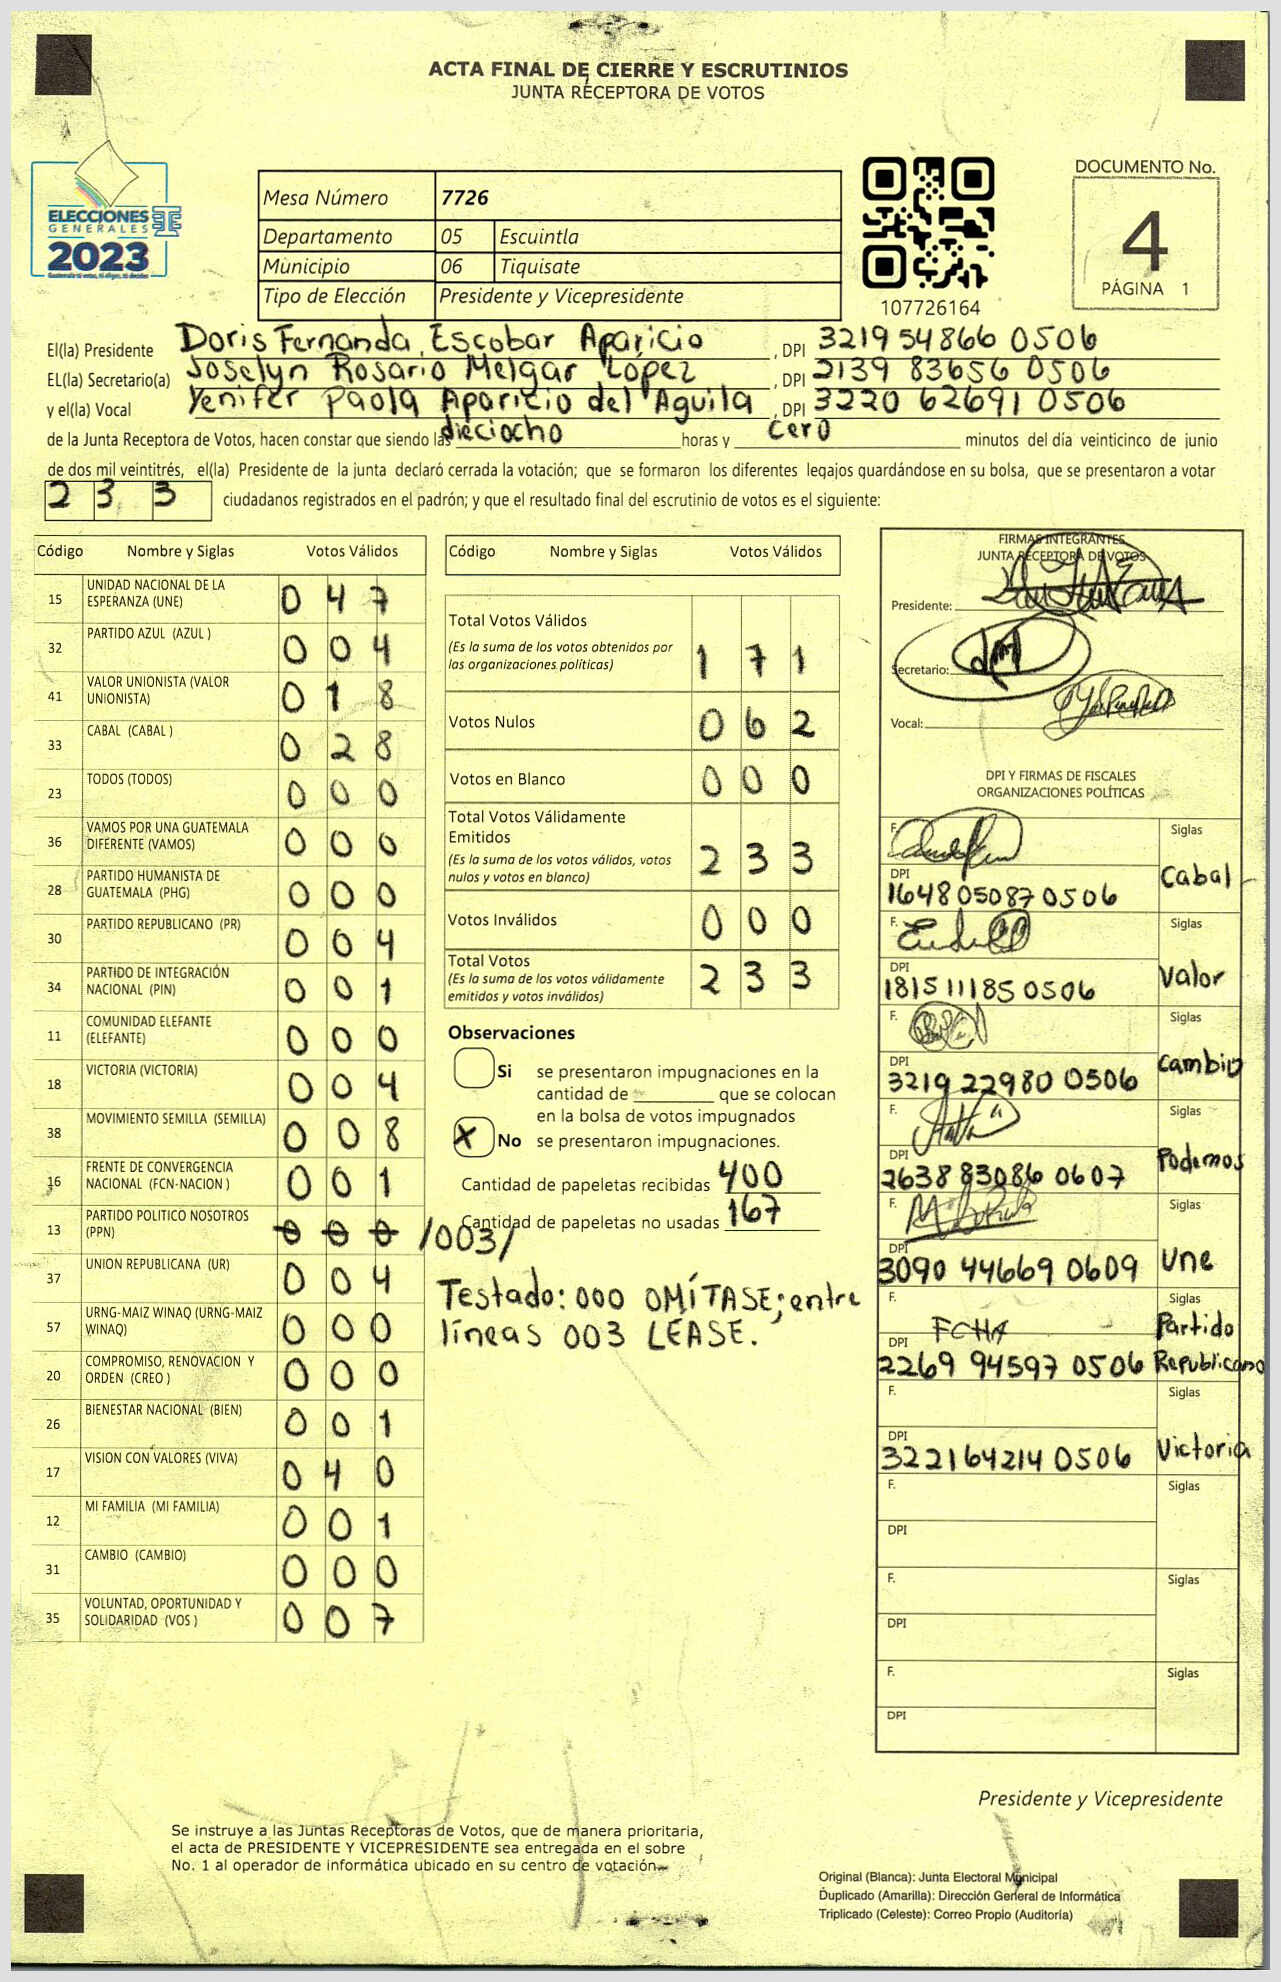 ACTA FINAL DE CIERRE Y ESCRUTINIOS
JUNTA RECEPTORA DE VOTOS
ELECCIONES
GENERALES
2023
Mesa Número 7726
Departamento 05 Escuintla
Municipio 06 Tiquisate
Tipo de Elección Presidente y Vicepresidente
107726164
DOCUMENTO No.
4
PÁGINA 1
El(la) Presidente Doris Fernanda Escobar Aparicio, DPI 3219 54866 0506
EL(la) Secretario(a) Joselyn Rosario Melgar López, DPI 2139 83656 0506
y el(la) Vocal Yenifer Paola Aparicio del Aguila, DPI 3220 62691 0506
de la Junta Receptora de Votos, hacen constar que siendo las dieciocho horas y cero minutos del día veinticinco de junio
de dos mil veintitrés, el(la) Presidente de la junta declaró cerrada la votación; que se formaron los diferentes legajos guardándose en su bolsa, que se presentaron a votar
2 3 3 ciudadanos registrados en el padrón; y que el resultado final del escrutinio de votos es el siguiente:
Código Nombre y Siglas Votos Válidos
15 UNIDAD NACIONAL DE LA ESPERANZA (UNE) 0 4 7
32 PARTIDO AZUL (AZUL ) 0 0 4
41 VALOR UNIONISTA (VALOR UNIONISTA) 0 1 8
33 CABAL (CABAL ) 0 2 8
23 TODOS (TODOS) 0 0 0
36 VAMOS POR UNA GUATEMALA DIFERENTE (VAMOS) 0 0 0
28 PARTIDO HUMANISTA DE GUATEMALA (PHG) 0 0 0
30 PARTIDO REPUBLICANO (PR) 0 0 4
34 PARTIDO DE INTEGRACIÓN NACIONAL (PIN) 0 0 1
11 COMUNIDAD ELEFANTE (ELEFANTE) 0 0 0
18 VICTORIA (VICTORIA) 0 0 4
38 MOVIMIENTO SEMILLA (SEMILLA) 0 0 8
16 FRENTE DE CONVERGENCIA NACIONAL (FCN-NACION ) 0 0 1
13 PARTIDO POLITICO NOSOTROS (PPN) 0 0 0 /003/
37 UNION REPUBLICANA (UR) 0 0 4
57 URNG-MAIZ WINAQ (URNG-MAIZ WINAQ) 0 0 0
20 COMPROMISO, RENOVACION Y ORDEN (CREO ) 0 0 0
26 BIENESTAR NACIONAL (BIEN) 0 0 1
17 VISION CON VALORES (VIVA) 0 4 0
12 MI FAMILIA (MI FAMILIA) 0 0 1
31 CAMBIO (CAMBIO) 0 0 0
35 VOLUNTAD, OPORTUNIDAD Y SOLIDARIDAD (VOS ) 0 0 7
Código Nombre y Siglas Votos Válidos
Total Votos Válidos
(Es la suma de los votos obtenidos por
las organizaciones políticas) 1 7 1
Votos Nulos 0 6 2
Votos en Blanco 0 0 0
Total Votos Válidamente
Emitidos
(Es la suma de los votos válidos, votos
nulos y votos en blanco) 2 3 3
Votos Inválidos 0 0 0
Total Votos
(Es la suma de los votos válidamente
emitidos y votos inválidos) 2 3 3
Observaciones
Si se presentaron impugnaciones en la
cantidad de ________ que se colocan
en la bolsa de votos impugnados
X No se presentaron impugnaciones.
Cantidad de papeletas recibidas 400
Cantidad de papeletas no usadas 167
Testado: 000 OMÍTASE; entre
líneas 003 LÉASE.
FIRMAS INTEGRANTES
JUNTA RECEPTORA DE VOTOS
Presidente:
Secretario:
Vocal:
DPI Y FIRMAS DE FISCALES
ORGANIZACIONES POLÍTICAS
F. Siglas
DPI 1648 05087 0506 Cabal
F. Siglas
DPI 1815 11185 0506 Valor
F. Siglas
DPI 3219 22980 0506 Cambio
F. Siglas
DPI 2638 83086 0607 Podemos
F. Siglas
DPI 3090 44669 0609 Une
F. FCHA Siglas
DPI 2269 94597 0506 Partido Republicano
F. Siglas
DPI 3221 64214 0506 Victoria
F. Siglas
DPI
F. Siglas
DPI
F. Siglas
DPI
Presidente y Vicepresidente
Se instruye a las Juntas Receptoras de Votos, que de manera prioritaria,
el acta de PRESIDENTE Y VICEPRESIDENTE sea entregada en el sobre
No. 1 al operador de informática ubicado en su centro de votación.
Original (Blanca): Junta Electoral Municipal
Duplicado (Amarilla): Dirección General de Informática
Triplicado (Celeste): Correo Propio (Auditoría)